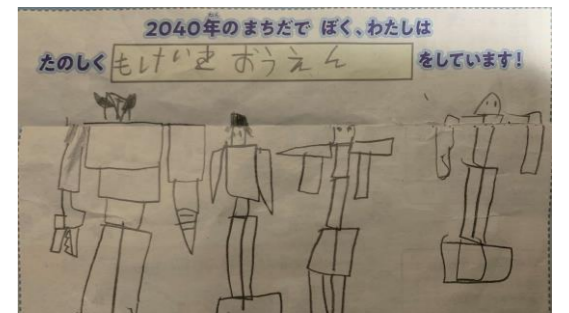 2040年のまちだで ぼく、わたしは
たのしく もけいき おうえん をしています!